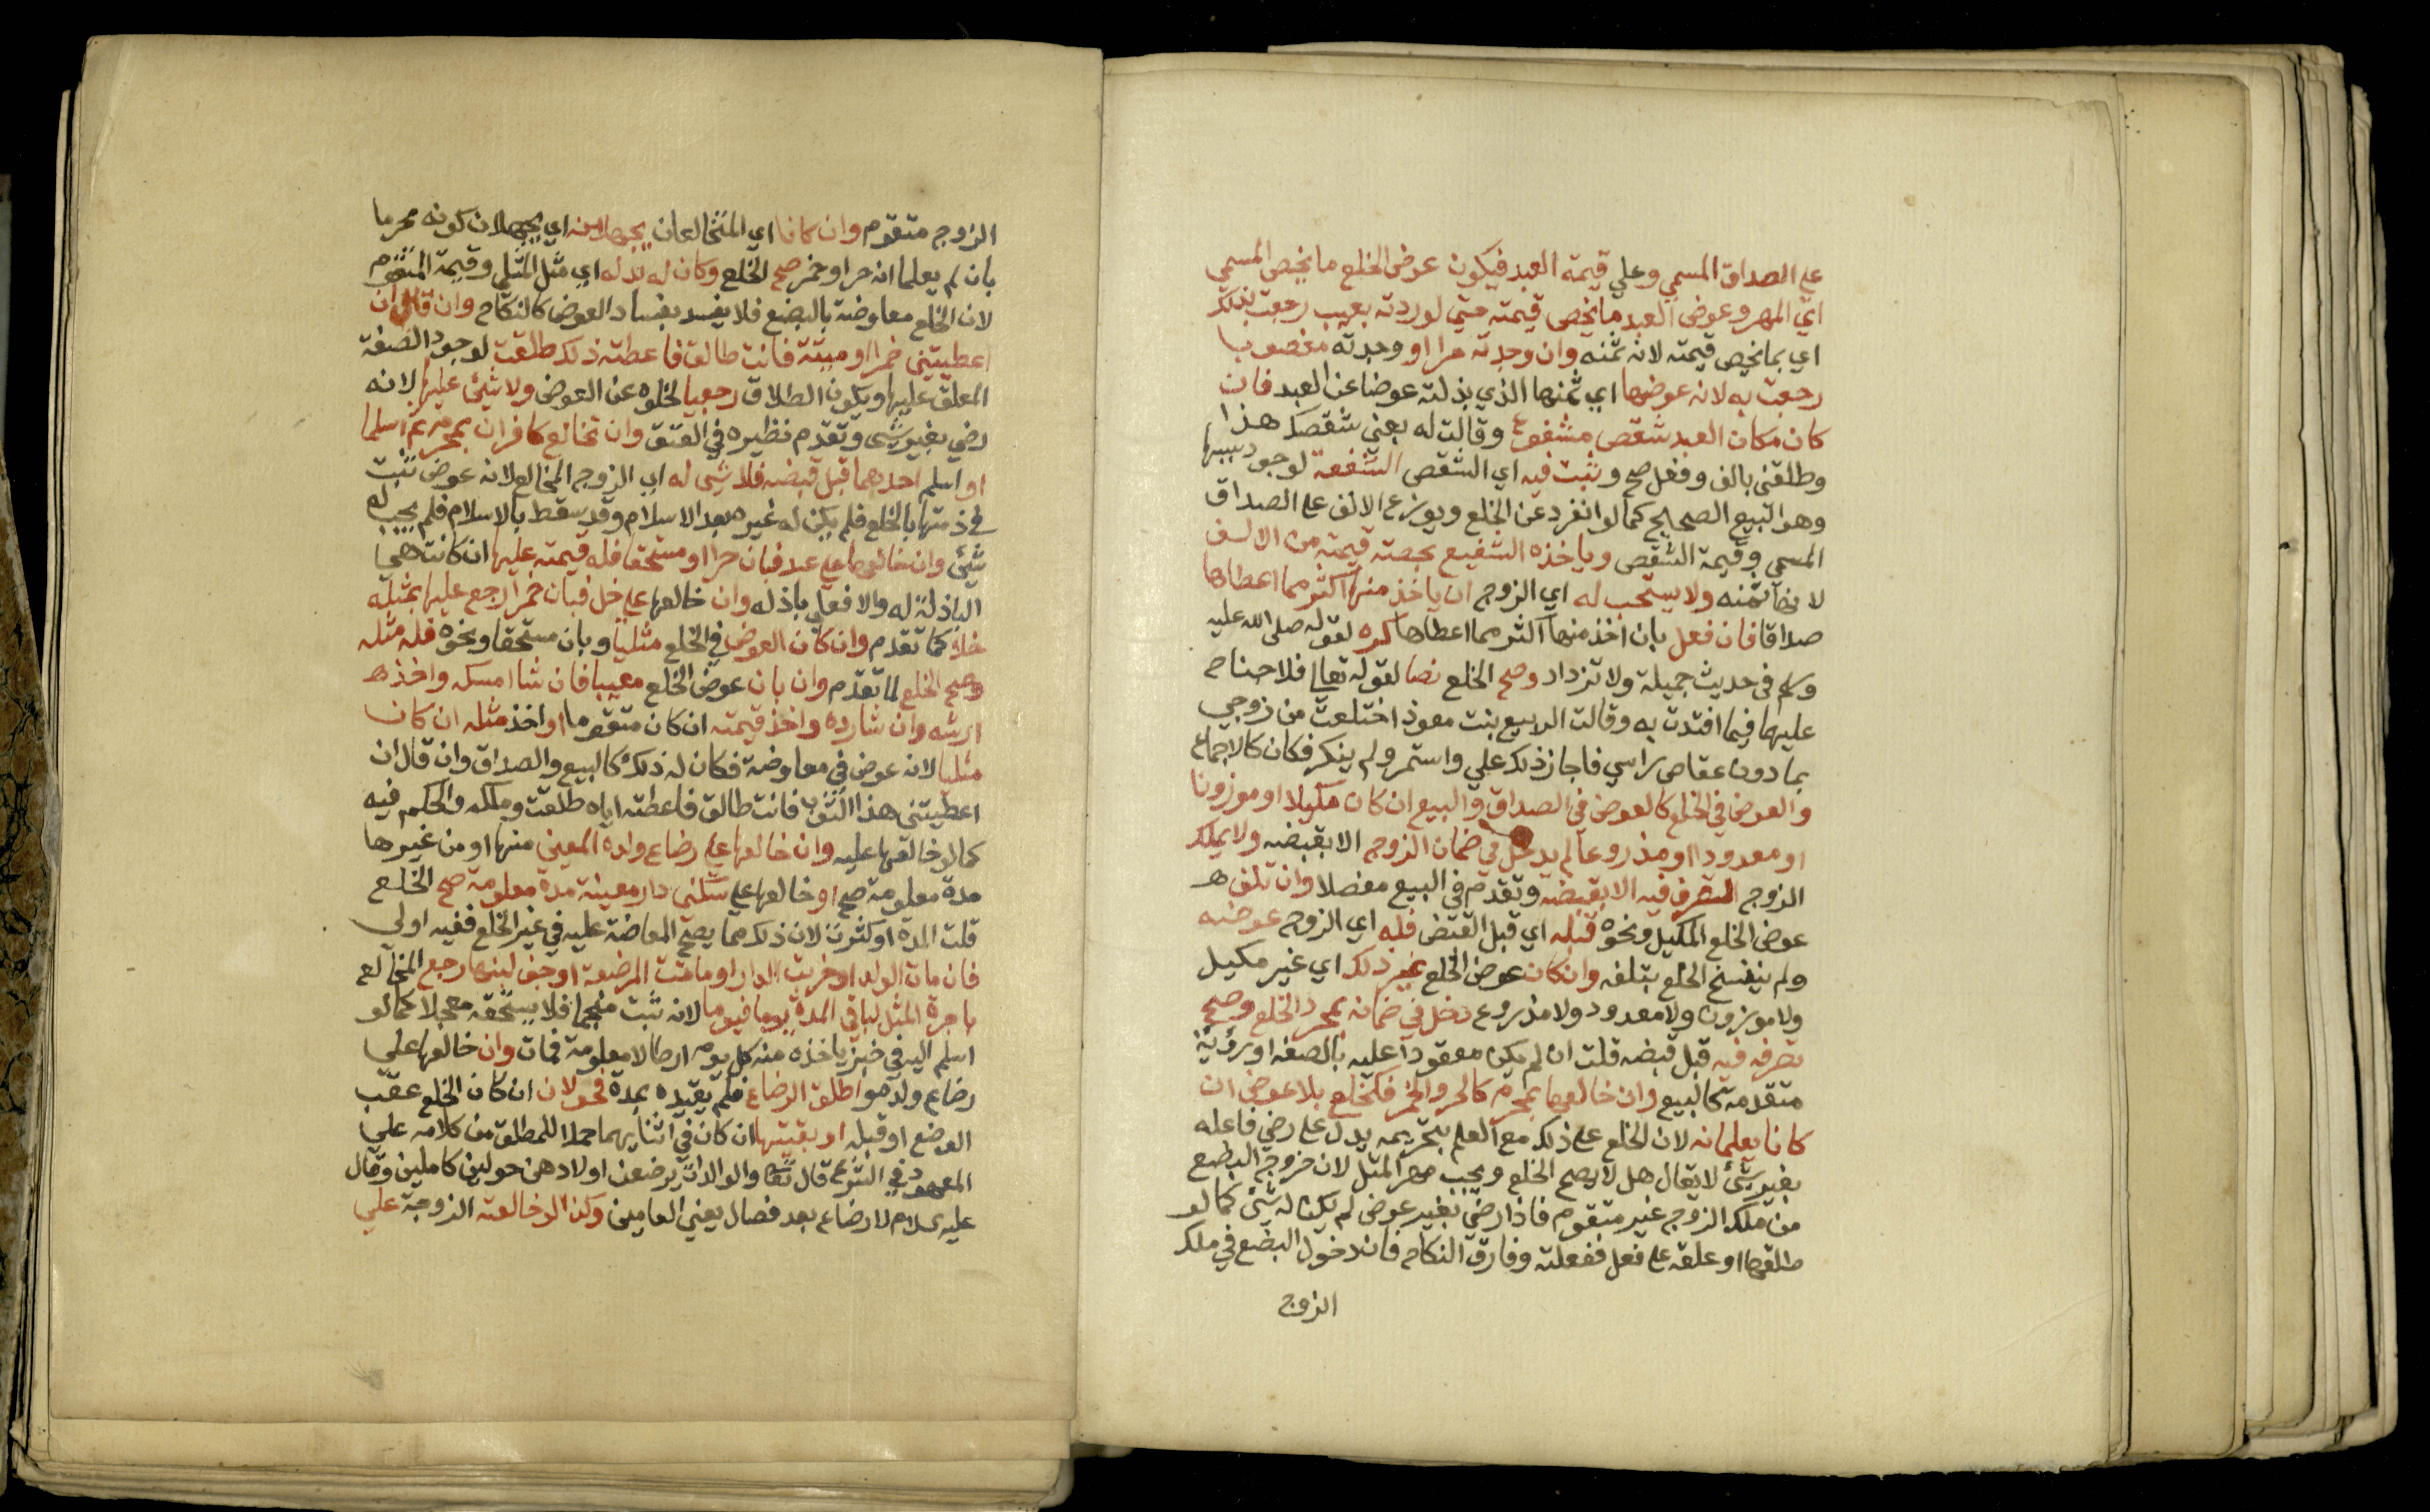 على الصداق المسمي وعلي قيمة العبد فيكون عوض الخلع ما يخص المسمي
اي المهر وعوض العبد ما يخص قيمته حتي لو ردته بعيب رجعت بذلك
اي بما يخص قيمته لانه ثمنه وان وجدته حرا او وجدته مغصوبا
رجعت به لانه عوضها اي ثمنها الذي بذلته عوضا عن العبد فان
كان مكان العبد شقص مشفوع وقالت له بعني شقصك هذا
وطلقني بالف وفعل صح وتثبت فيه اي الشقص الشفعة لوجود سببها
وهو البيع الصحيح كما لو انفرد عن الخلع ويوزع الالف على الصداق
المسمي وقيمة الشقص وياخذه الشفيع بحصة قيمته من الالف
لانها ثمنه ولا يستحب له اي الزوج ان ياخذ منها اكثر مما اعطاها
صداقا فان فعل بان اخذ منها اكثر مما اعطاها كره لقوله صلى الله عليه
وسلم في حديث جميلة ولا تزداد وصح الخلع نصا لقوله تعالى فلا جناح
عليهما فيما افتدت به وقالت الربيع بنت معوذ اختلعت من زوجي
بما دون عقاص راسي فاجاز ذلك علي واستمر ولم ينكر فكان كالاجماع
والعوض في الخلع كالعوض في الصداق والبيع ان كان مكيلا او موزونا
او معدودا او مذروعا لم يدخل في ضمان الزوج الا بقبضه ولا يملك
الزوج التصرف فيه الا بقبضه وتقدم في البيع مفصلا وان تلف
عوض الخلع المكيل ونحوه قبله اي قبل القبض فله اي الزوج عوضه
ولم ينفسخ الخلع بتلفه وان كان عوض الخلع غير ذلك اي غير مكيل
ولا موزون ولا معدود ولا مذروع دخل في ضمانه بمجرد الخلع وصح
تصرفه فيه قبل قبضه قلت ان لم يكن معقودا عليه بالصفة او رؤية
متقدمة كالبيع وان خالعها بمحرم كالحر والخمر فكخلع بلا عوض ان
كانا يعلمانه لان الخلع على ذلك مع العلم بتحريمه يدل على رضي فاعله
بغير شئ لا يقال هل لا يصح الخلع ويجب مهر المثل لان خروج البضع
من ملك الزوج غير متقوم فاذا رضي بغير عوض لم يكن له شئ كما لو
طلقها او علقه على فعل ففعلته وفارق النكاح فان دخول البضع في ملك
الزوج
الزوج متقوم وان كانا اي المتخالعان يجهلانه اي يجهلان كونه محرما
بان لم يعلما انه حر او خمر صح الخلع وكان له بدله اي مثل المثلي وقيمة المتقوم
لان الخلع معاوضة بالبضع فلا يفسد بفساد العوض كالنكاح وان قال ان
اعطيتيني خمرا او ميتة فانت طالق فاعطته ذلك طلقت لوجود الصفة
المعلق عليها ويكون الطلاق رجعيا لخلوه عن العوض ولا شئ عليها لانه
رضي بغير شئ وتقدم نظيره في العتق وان تخالع كافران بمحرم ثم اسلما
او اسلم احدهما قبل قبضه فلا شئ له اي الزوج المخالع لانه عوض ثبت
في ذمتها بالخلع فلم يكن له غيره بعد الاسلام وقد سقط بالاسلام فلم يجب له
شئ وان خالعها على عبد فبان حرا او مستحقا فله قيمته عليها ان كانت هي
الباذلة له والا فعلي باذله وان خالعها على خل فبان خمرا رجع عليها بمثله
خلا كما تقدم وان كان العوض في الخلع مثليا وبان مستحقا ونحوه فله مثله
وصح الخلع لما تقدم وان بان عوض الخلع معيبا فان شا امسكه واخذ
ارشه وان شا رده واخذ قيمته ان كان متقوما او اخذ مثله ان كان
مثليا لانه عوض في معاوضة فكان له ذلك كالبيع والصداق وان قال ان
اعطيتني هذا الثوب فانت طالق فاعطته اياه طلقت وملكه والحكم فيه
كما لو خالعها عليه وان خالعها على رضاع ولده المعين منها او من غيرها
مدة معلومة صح او خالعها على سكنى دار معينة مدة معلومة صح الخلع
قلت المدة او كثرت لان ذلك مما يصح المعاوضة عليه في غير الخلع ففيه اولى
فان مات الولد او خربت الدار او ماتت المرضعة او جف لبنها رجع المخالع
باجرة المثل لباقي المدة يوما فيوما لانه ثبت منجما فلا يستحقه معجلا كما لو
اسلم اليه في خبز ياخذه منه كل يوم ارطالا معلومة فمات وان خالعها علي
رضاع ولده واطلق الرضاع فلم يقيده بمدة فحولان ان كان الخلع عقب
الوضع او قبله او بقيتهما ان كان في اثنايهما حملا للمطلق من كلامه علي
المعهود في الشرع قال تعالى والوالدات يرضعن اولادهن حولين كاملين وقال
عليه السلام لا رضاع بعد فصال يعني العامين وكذا لو خالعته الزوجة علي